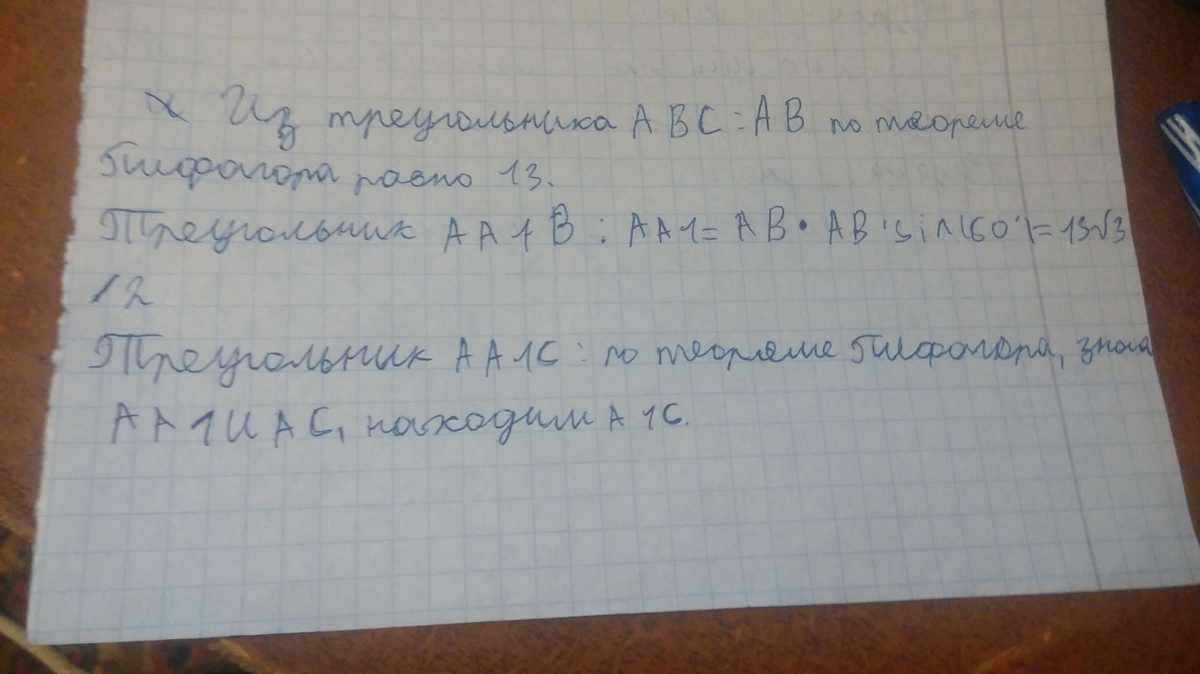 Из треугольника ABC : AB по теореме
Пифагора равно 13.
Треугольник AA1B : AA1= AB • AB · sin(60°)= 13√3
/2
Треугольник AA1C : по теореме Пифагора, зная
AA1 и AC, находим A1C.